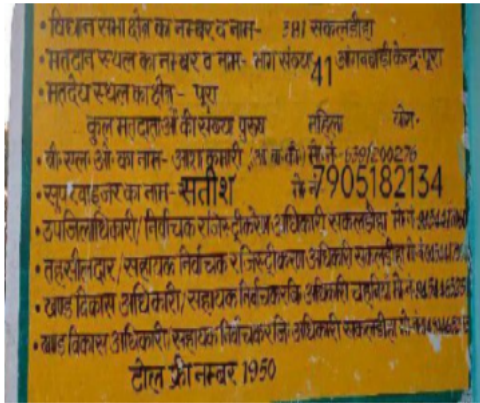 • विधान सभा क्षेत्र का नम्बर व नाम- 381 सकलडीहा
• मतदान स्थल का नम्बर व नाम- भाग संख्या 41 आंगनबाड़ी केन्द्र पूरा
• मतदेय स्थल का क्षेत्र - पूरा
कुल मतदाताओं की संख्या पुरुष महिला योग-
• बी.एल.ओ. का नाम- आशा कुमारी मो.नं.-
• सुपरवाइजर का नाम- सतीश मो.नं. 7905182134
• उपजिलाधिकारी/ निर्वाचक रजिस्ट्रीकरण अधिकारी सकलडीहा मो.नं.
• तहसीलदार/सहायक निर्वाचक रजिस्ट्रीकरण अधिकारी सकलडीहा मो.नं.
• खण्ड विकास अधिकारी/सहायक निर्वाचक रजि. अधिकारी चहनियां मो.नं.
• खण्ड विकास अधिकारी/सहायक निर्वाचक रजि. अधिकारी सकलडीहा मो.नं.
टोल फ्री नम्बर 1950